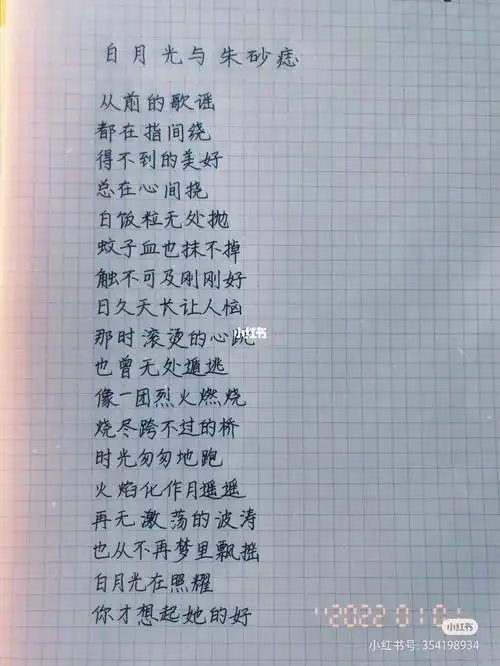 白月光与朱砂痣
从前的歌谣
都在指间绕
得不到的美好
总在心间挠
白饭粒无处抛
蚊子血也抹不掉
触不可及刚刚好
日久天长让人恼
那时滚烫的心跳
也曾无处遁逃
像一团烈火燃烧
烧尽跨不过的桥
时光匆匆地跑
火焰化作月遥遥
再无激荡的波涛
也从不再梦里飘摇
白月光在照耀
你才想起她的好
小红书
2022 01 01
小红书
小红书号: 354198934